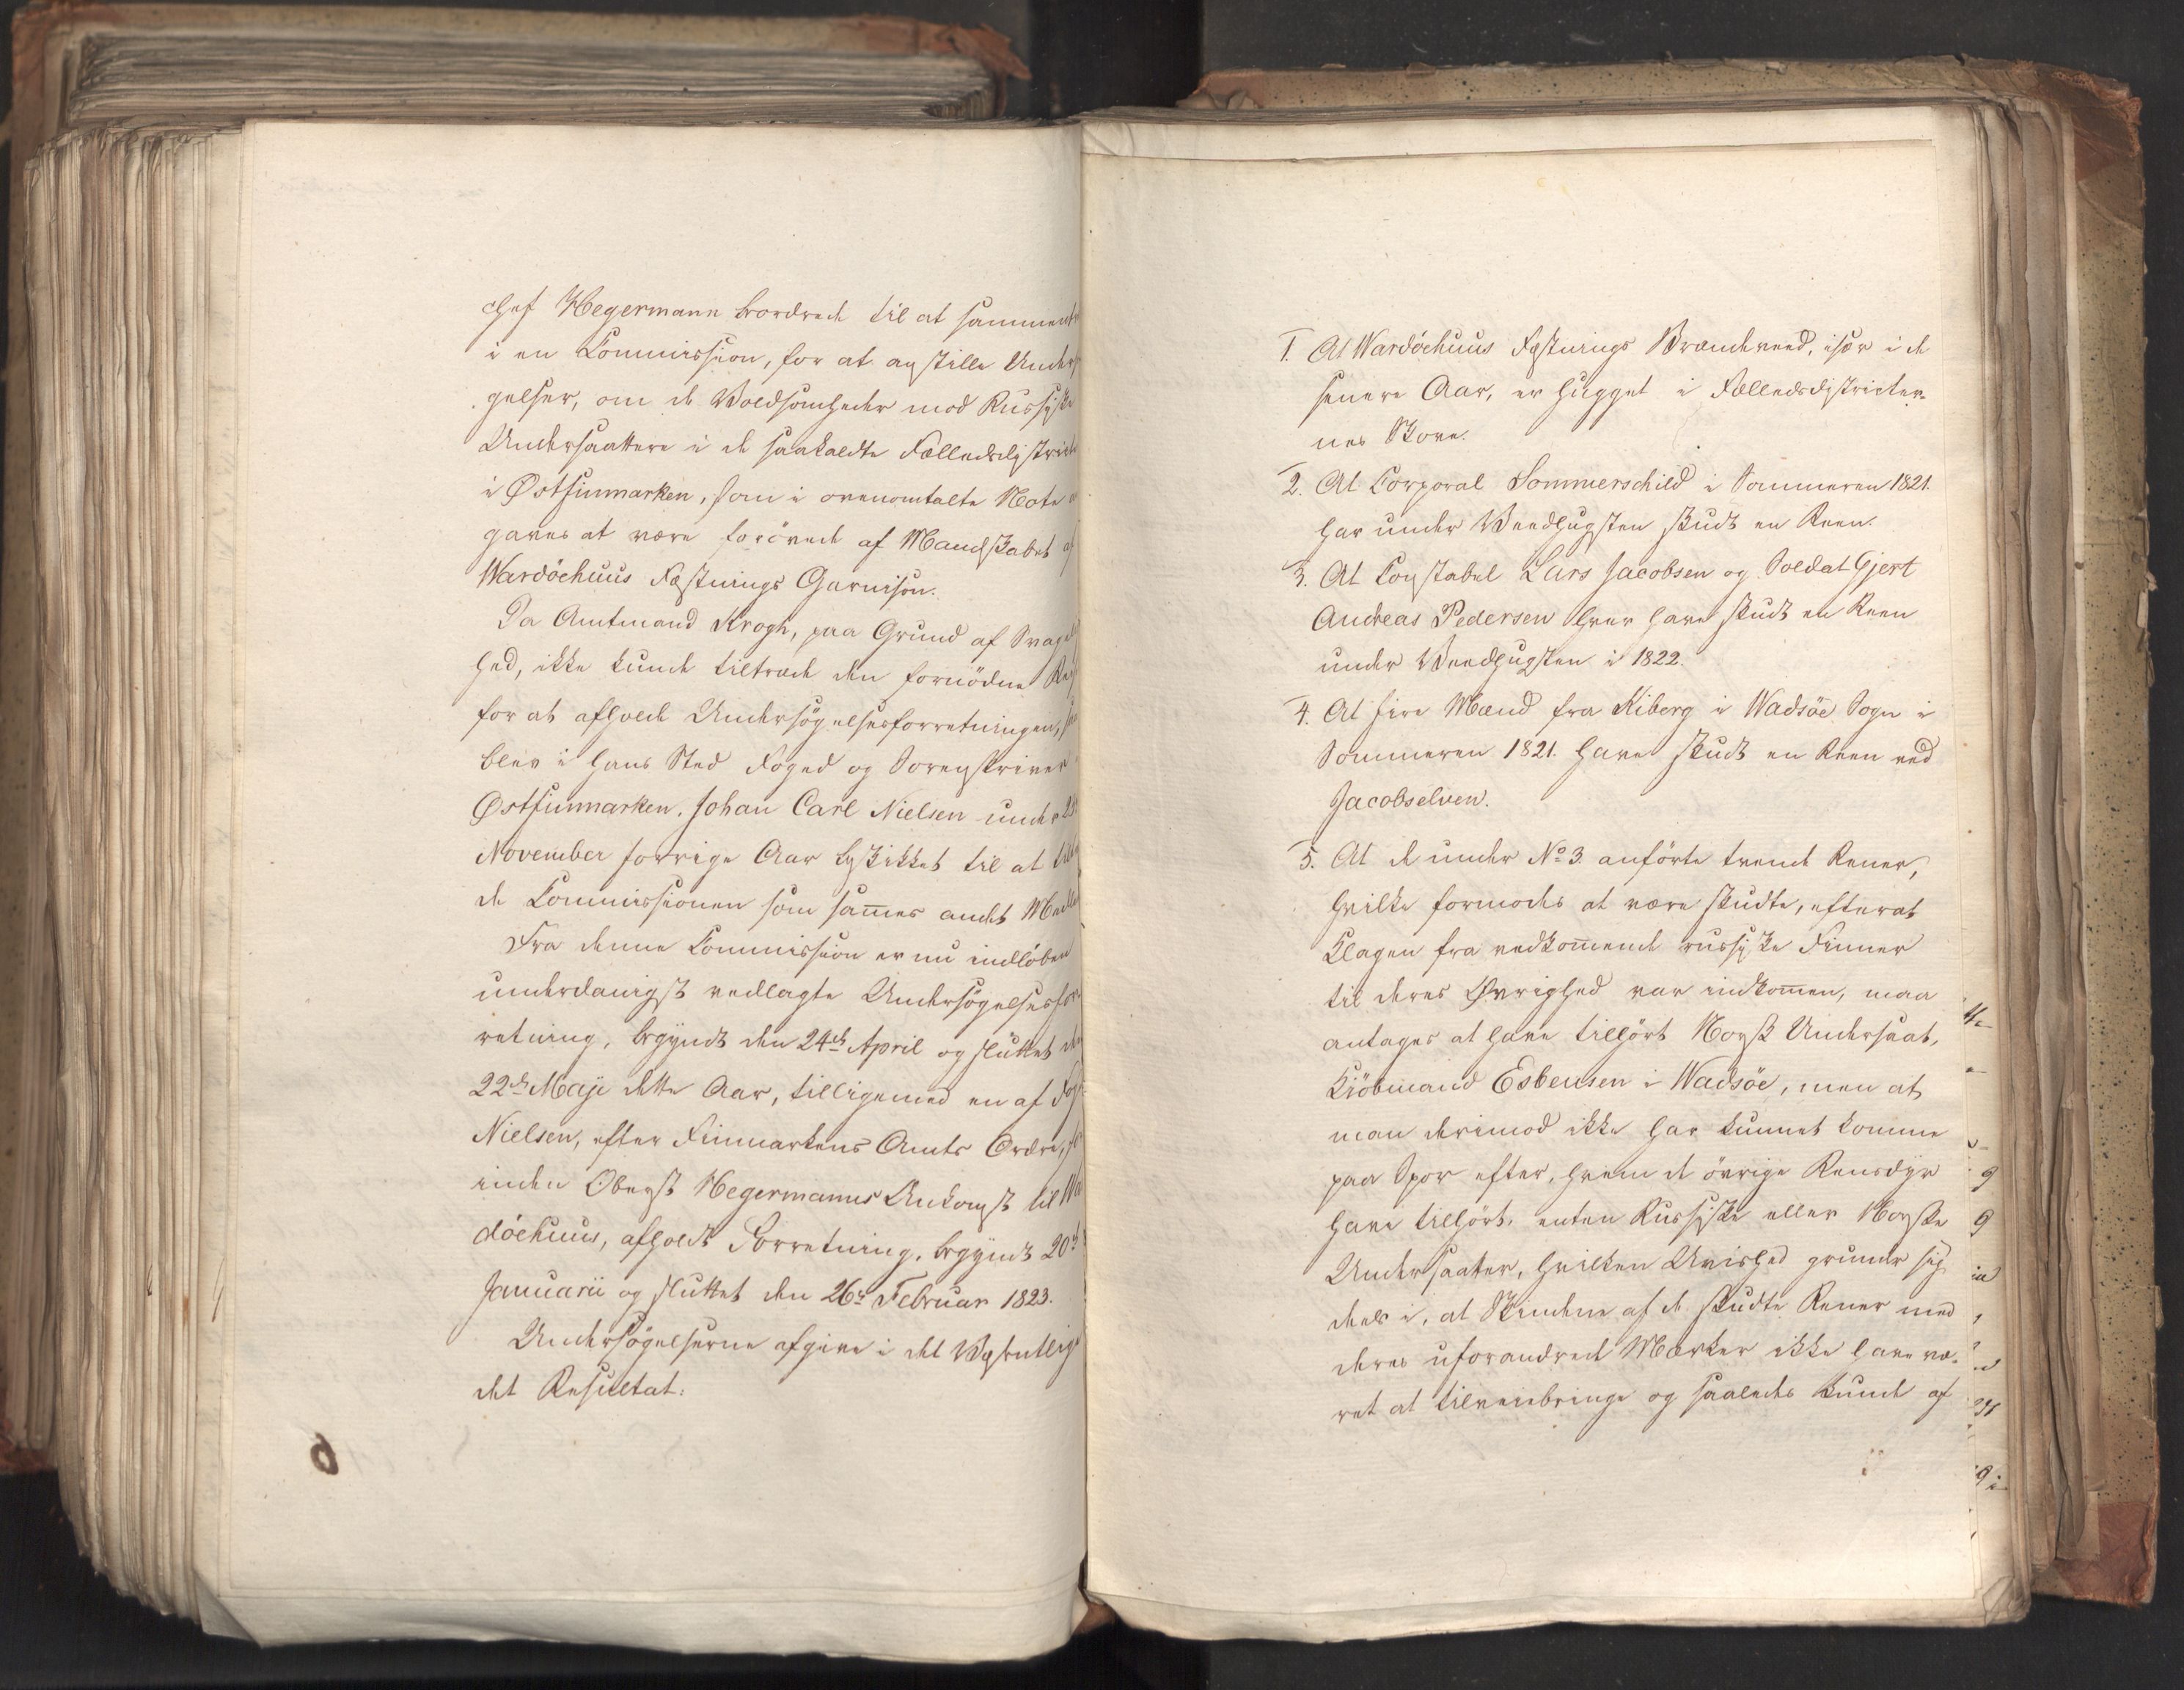 chef Hegermann beordrede til at sammentræ
i en Commission, for at anstille Undersø
gelser, om de Voldsomheder mod Russiske
Undersaattere i de saakaldte Fælledsdistricte
i Østfinmarken, som i ovenomtalte Note an
gaves at være forövede af Mandskabet af
Wardöehuus Fæstnings Garnison.
Da Amtmand Krogh, paa Grund af Svagelig
hed, ikke kunde tiltræde den fornödne Reise
for at afholde Undersögelsesforretningen, saa
blev i hans Sted Foged og Sorenskriver i
Østfinmarken, Johan Carl Nielsen under 28
November forrige Aar beskikket til at tiltræ
de Commissionen som sam̄es andet Medlem
Fra denne Commission er nu indlöben
underdanigst vedlagte Undersögelsesfor
retning, begyndt den 24de April og sluttet den
22de Maji dette Aar, tilligemed en af Foged
Nielsen, efter Finmarkens Amts Ordre, for
inden Oberst Hegermanns Ankomst til War
döehuus, afholdt Forretning, begyndt 20de
Januarii og sluttet den 26de Februar 1823.
Undersögelserne afgive i det Væsentlige
det Resultat:
1. At Wardöehuus Fæstnings Brændeveed, især i de
senere Aar, er hugget i Fælledsdistricter-
nes Skove.
2. At Corporal Sommerschild i Sommeren 1821.
har under Veedhugsten skudt en Reen.
3. At Constabel Lars Jacobsen og Soldat Gjert
Andreas Pedersen hver have skudt en Reen
under Veedhugsten i 1822.
4. At fire Mænd fra Kiberg i Wadsöe Sogn i
Sommeren 1821. have skudt en Reen ved
Jacobselven.
5. At de under No 3. anförte tvende Rener,
hvilke formodes at være skudte, efterat
Klagen fra vedkom̄ende russiske Finner
til deres Øvrighed var indkom̄en, maa
antages at have tilhört Norsk Undersaat,
Kiöbmand Esbensen i Wadsöe, men at
man derimod ikke har kunnet komme
paa Spor efter, hvem de övrige Rensdyr
have tilhört, enten Russiske eller Norske
Undersaater, hvilken Uvished grunder sig
deels i, at Skindene af de skudte Rener med
deres uforandrede Mærker ikke have væ-
ret at tilveiebringe og saaledes kunde af